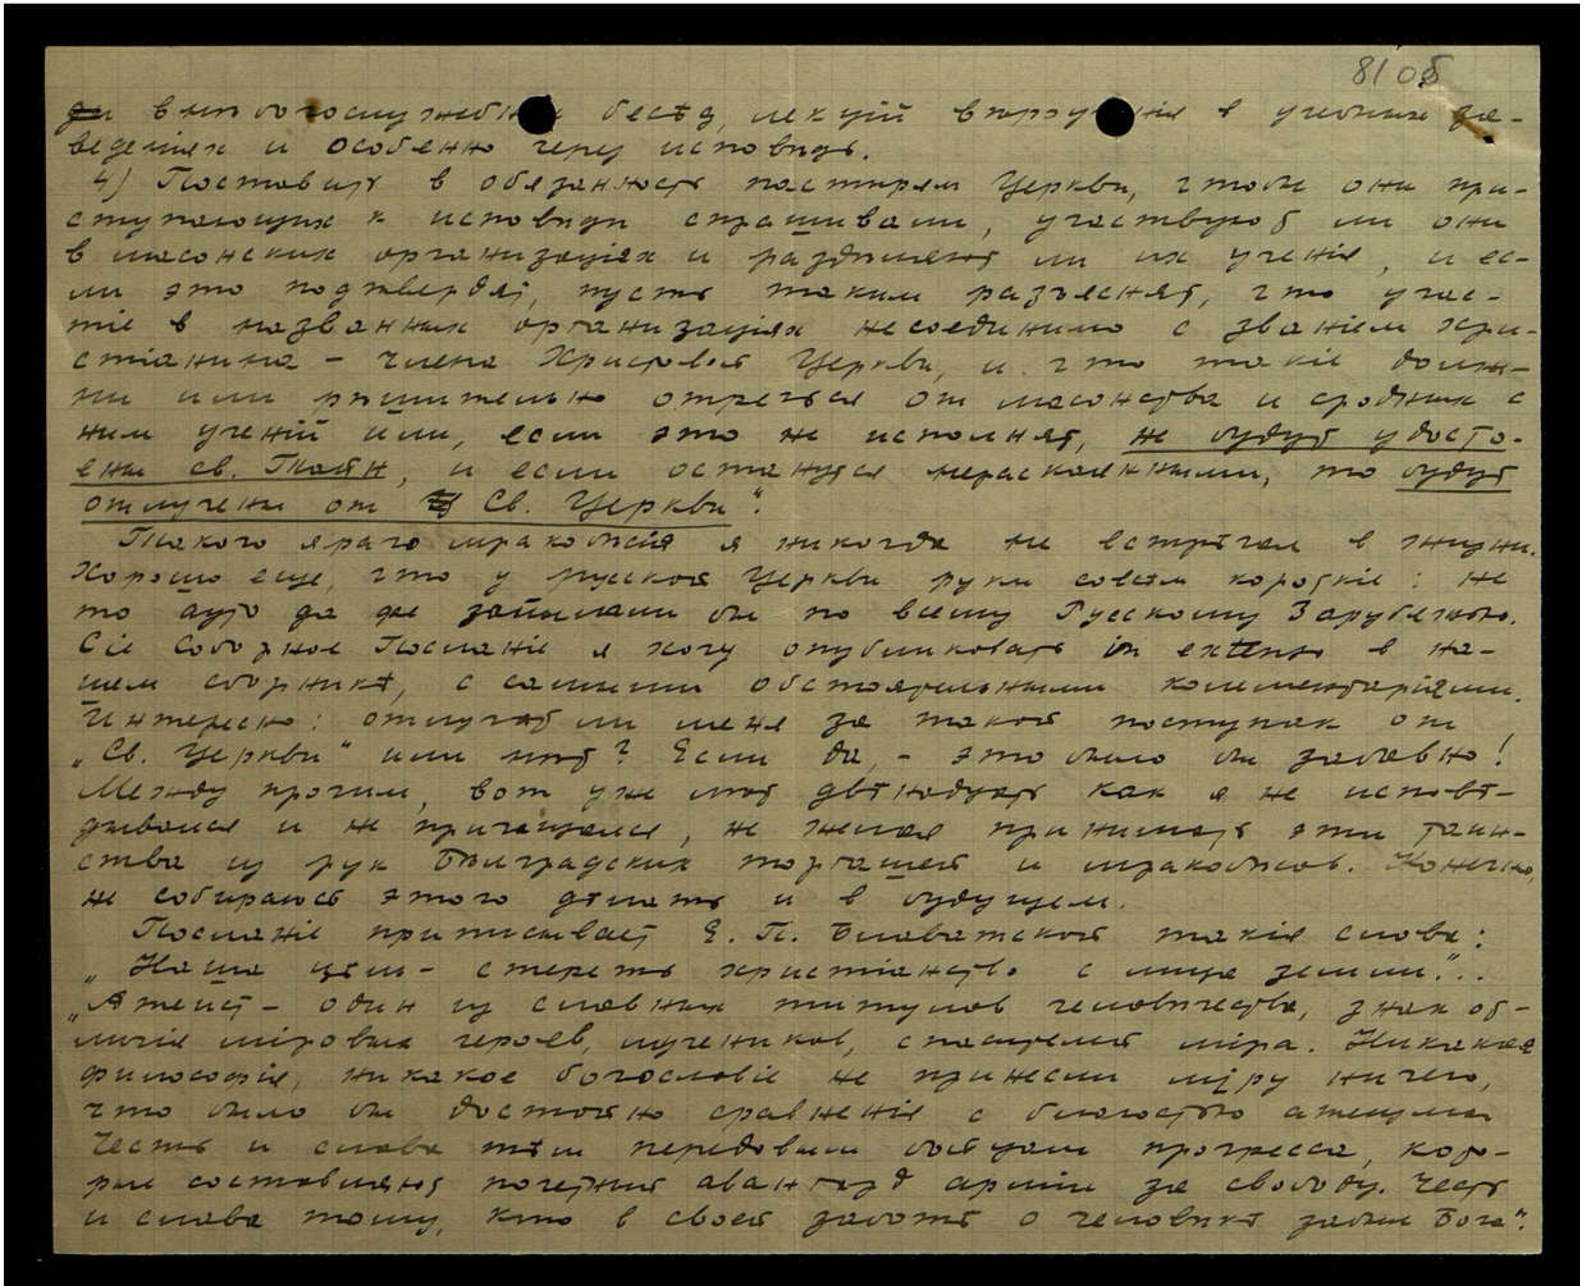 8105
внѣбогослужебных бесѣд, лекцій вѣроученія в учебных за-
веденіях и особенно через исповѣдь.
4) Поставить в обязанность пастырям Церкви, чтобы они при-
ступающих к исповѣди спрашивали, участвуют ли они
в масонских организаціях и раздѣляют ли их ученія, и ес-
ли это подтвердят, пусть таким разъяснят, что учас-
тіе в названных организаціях несоединимо с званіем хри-
стіанина - члена Христовой Церкви, и что такіе долж-
ны или рѣшительно отречься от масонства и сродных с
ним ученій или, если это не исполнят, не будут удосто-
ены св. Тайн, и если останутся нераскаянными, то будут
отлучены от Св. Церкви".
Такого яраго мракобѣсія я никогда не встрѣчал в жизни.
Хорошо еще, что у русской Церкви руки совсѣм короткіе: не
то ауто да фе запылали бы по всему Русскому Зарубежью.
Сіе Соборное Посланіе я хочу опубликовать in extenso в на-
шем сборникѣ, с самыми обстоятельными комментаріями.
Интересно: отлучат ли меня за такой поступок от
„Св. Церкви" или нѣт? Если да, - это было бы забавно!
Между прочим, вот уже лѣт двѣнадцать как я не исповѣ-
дывался и не причащался, не желая принимать эти таин-
ства из рук Бѣлградских торгашей и мракобѣсов. Конечно,
не собираюсь этого дѣлать и в будущем.
Посланіе приписывает Е. П. Блаватской такія слова:
„Наша цѣль - стереть христіанство с лица земли"...
„Атеист - один из славных титулов человѣчества, знак от-
личія міровых героев, мучеников, спасителей міра. Никакая
философія, никакое богословіе не принесли міру ничего,
что было бы достойно сравненія с благостью атеизма
Честь и слава тѣм передовым бойцам прогресса, кото-
рые составляют почетный авангард арміи за свободу. Честь
и слава тому, кто в своей заботѣ о человѣкѣ забыл Бога".